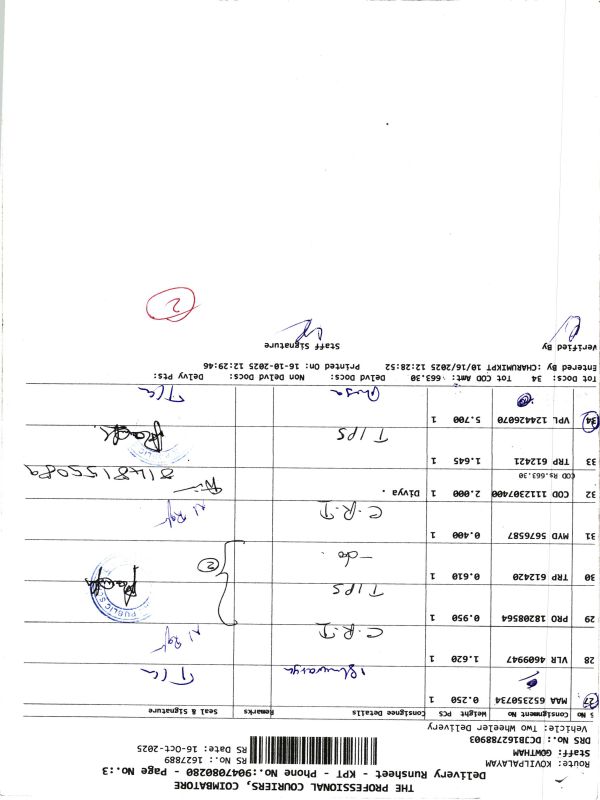 THE PROFESSIONAL COURIERS, COIMBATORE
Delivery Runsheet - KPT - Phone No.:9047080280 - Page No.:3
Route: KOVILPALAYAM
Staff: GOWTHAM
DRS No.: DCJB162788903
RS No.: 1627889
RS Date: 16-OCT-2025
Vehicle: Two Wheeler Delivery
S No Consignment No Weight PCS Consignee Details Remarks Seal & Signature
27 MAA 652350734 0.250 1 Ishwarya
28 VLR 4609947 1.620 1 C.R.I
29 PRO 18208564 0.950 1 TIPS
30 TRP 612420 0.610 1 -do. 2
31 MYD 5676587 0.400 1 C.R.I
32 COD 1112307400 2.000 1 Divya .
COD Rs.663.30
33 TRP 612421 1.645 1 TIPS
34 VPL 124426070 5.700 1
Tot Docs: 34 Tot COD Amt: 663.30 Delvd Docs: Non Delvd Docs: Delvy Pts:
Entered By :CHARUMIKPT 10/16/2025 12:28:52 Printed On: 16-10-2025 12:29:46
Verified By Staff Signature
2